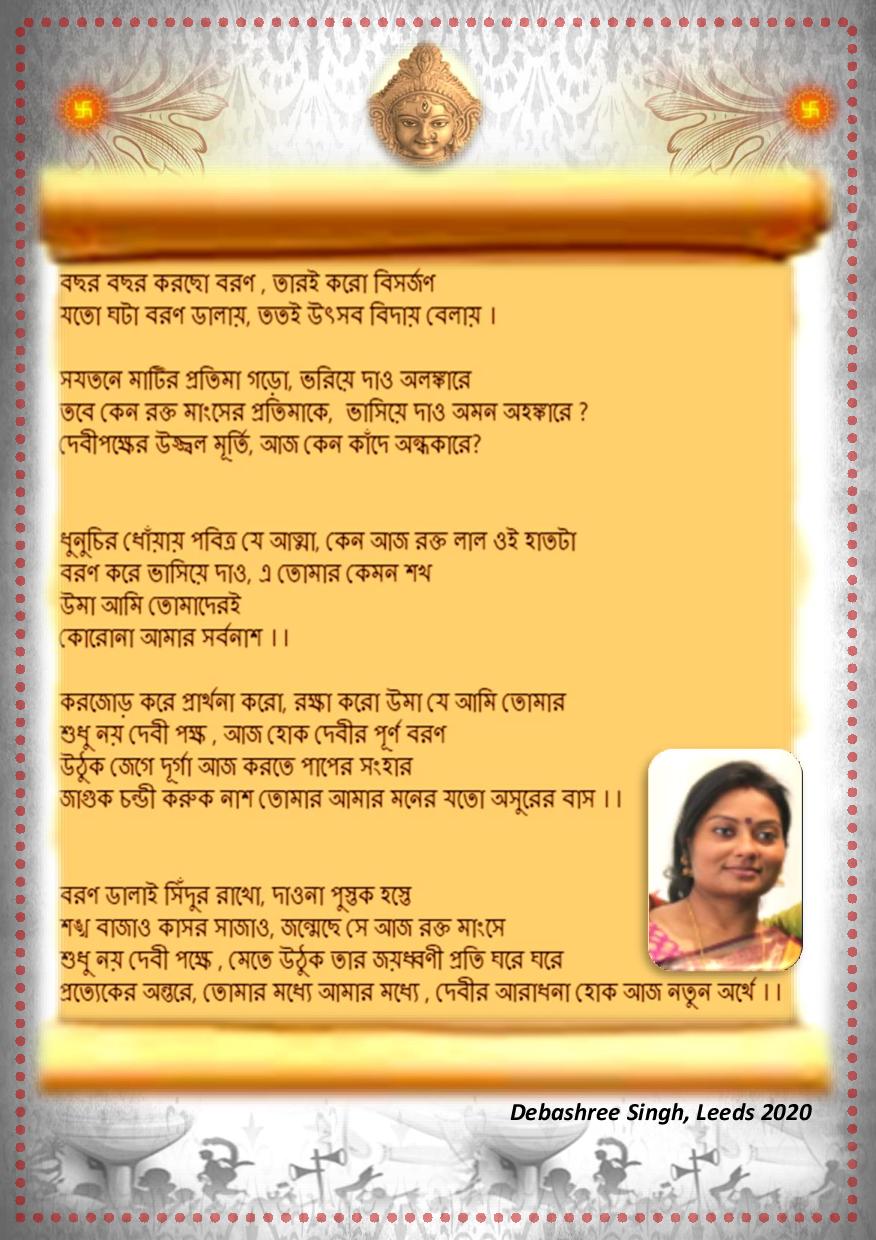 বছর বছর করছো বরণ , তারই করো বিসর্জণ
যতো ঘটা বরণ ডালায়, ততই উৎসব বিদায় বেলায় ।
সযতনে মাটির প্রতিমা গড়ো, ভরিয়ে দাও অলঙ্কারে
তবে কেন রক্ত মাংসের প্রতিমাকে, ভাসিয়ে দাও অমন অহঙ্কারে ?
দেবীপক্ষের উজ্জ্বল মূর্তি, আজ কেন কাঁদে অন্ধকারে?
ধুনুচির ধোঁয়ায় পবিত্র যে আত্মা, কেন আজ রক্ত লাল ওই হাতটা
বরণ করে ভাসিয়ে দাও, এ তোমার কেমন শখ
উমা আমি তোমাদেরই
কোরোনা আমার সর্বনাশ ।।
করজোড় করে প্রার্থনা করো, রক্ষা করো উমা যে আমি তোমার
শুধু নয় দেবী পক্ষ , আজ হোক দেবীর পূর্ণ বরণ
উঠুক জেগে দূর্গা আজ করতে পাপের সংহার
জাগুক চন্ডী করুক নাশ তোমার আমার মনের যতো অসূরের বাস ।।
বরণ ডালাই সিঁদুর রাখো, দাওনা পুস্তক হস্তে
শঙ্খ বাজাও কাসর সাজাও, জন্মেছে সে আজ রক্ত মাংসে
শুধু নয় দেবী পক্ষে , মেতে উঠুক তার জয়ধ্বণী প্রতি ঘরে ঘরে
প্রত্যেকের অন্তরে, তোমার মধ্যে আমার মধ্যে , দেবীর আরাধনা হোক আজ নতুন অর্থে ।।
Debashree Singh, Leeds 2020